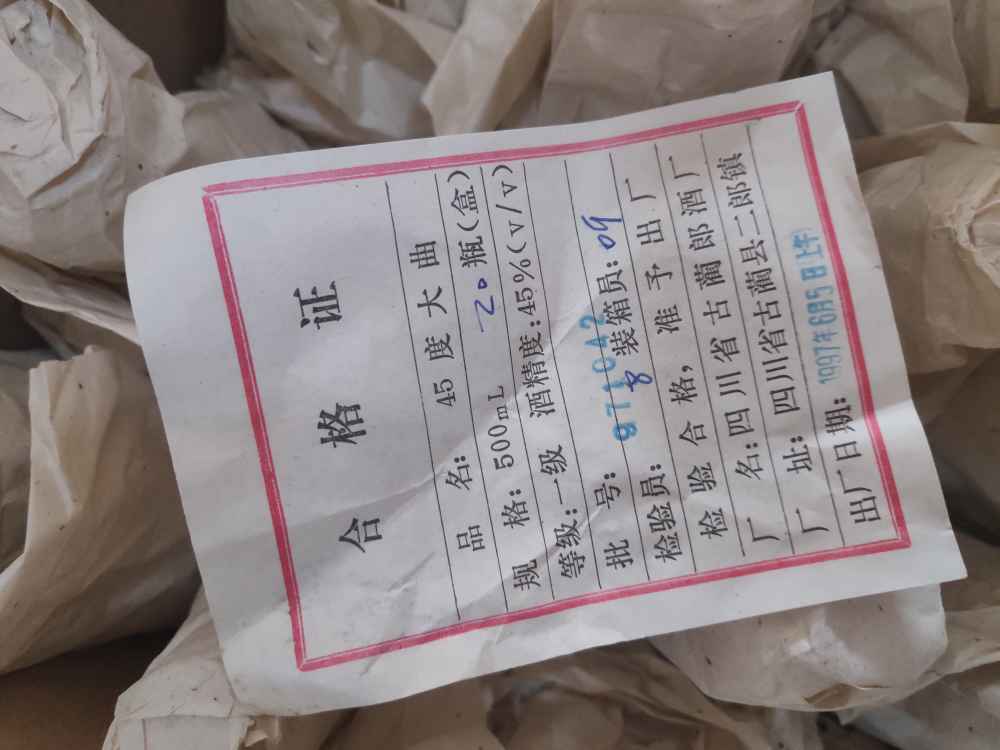 合格证
品名:45度大曲
规格:500mL 20瓶(盒)
等级:一级 酒精度:45%(V/V)
批号:971042
检验员:8 装箱员:09
检验合格,准予出厂
厂名:四川省古蔺郎酒厂
厂址:四川省古蔺县二郎镇
出厂日期:1997年6月5日上午